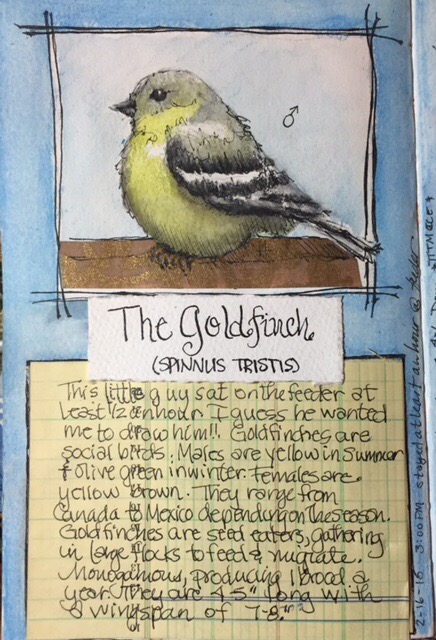 ♂
The Goldfinch
(SPINNUS TRISTIS)
This little guy sat on the feeder at
least 1/2 an hour. I guess he wanted
me to draw him!! Goldfinches are
social birds. Males are yellow in summer
+ olive green in winter. Females are
yellow brown. They range from
Canada to Mexico depending on the season.
Goldfinches are seed eaters, gathering
in large flocks to feed & migrate.
Monogamous, producing 1 brood a
year. They are 4-5" long with
a wingspan of 7-8."
2-16-16 3:00 PM stayed at least an hour @ feeder